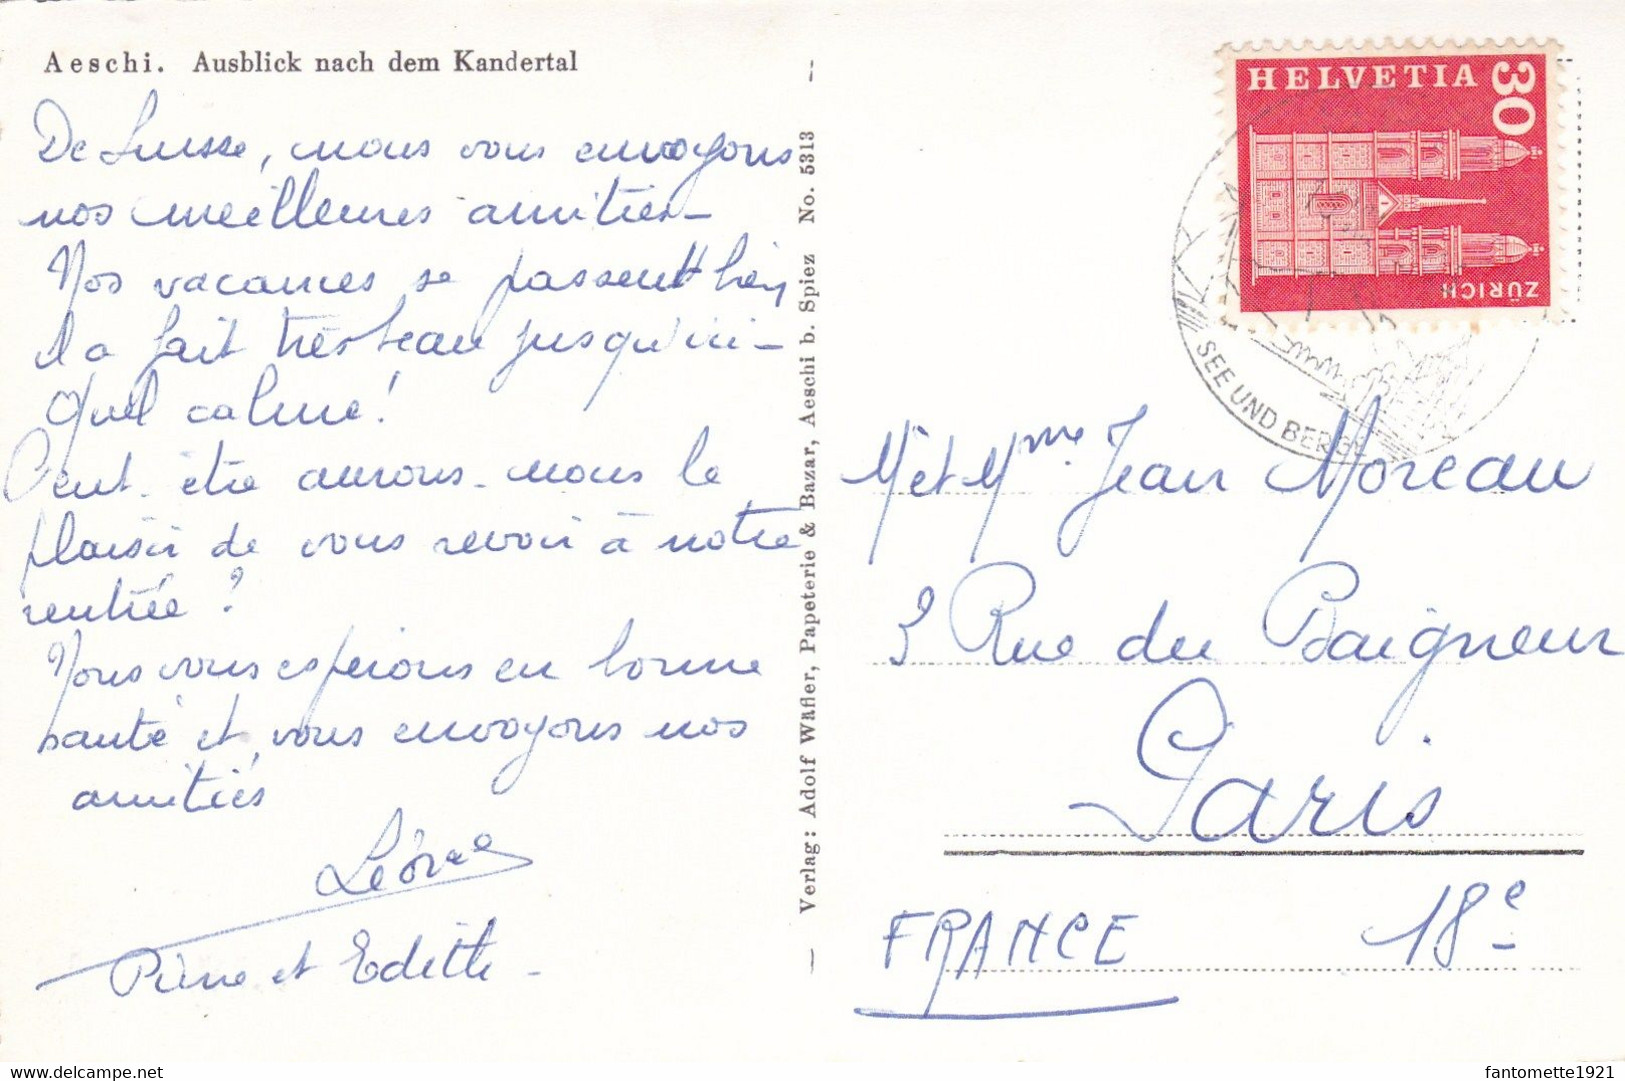 Aeschi. Ausblick nach dem Kandertal
De Suisse, nous vous envoyons
nos meilleures amitiés -
Nos vacances se passent bien
il a fait très beau jusqu'ici -
Quel calme!
Peut-être aurons-nous le
plaisir de vous revoir à notre
rentrée?
Nous vous espérons en bonne
santé et vous envoyons nos
amitiés
Pierre et Edith -
Verlag: Adolf Wäfler, Papeterie & Bazar, Aeschi b. Spiez No. 5313
HELVETIA
30
ZÜRICH
SEE UND BERGE
M et Mme Jean Moreau
3 Rue du Baigneur
Paris
FRANCE 18e
fantomette1921